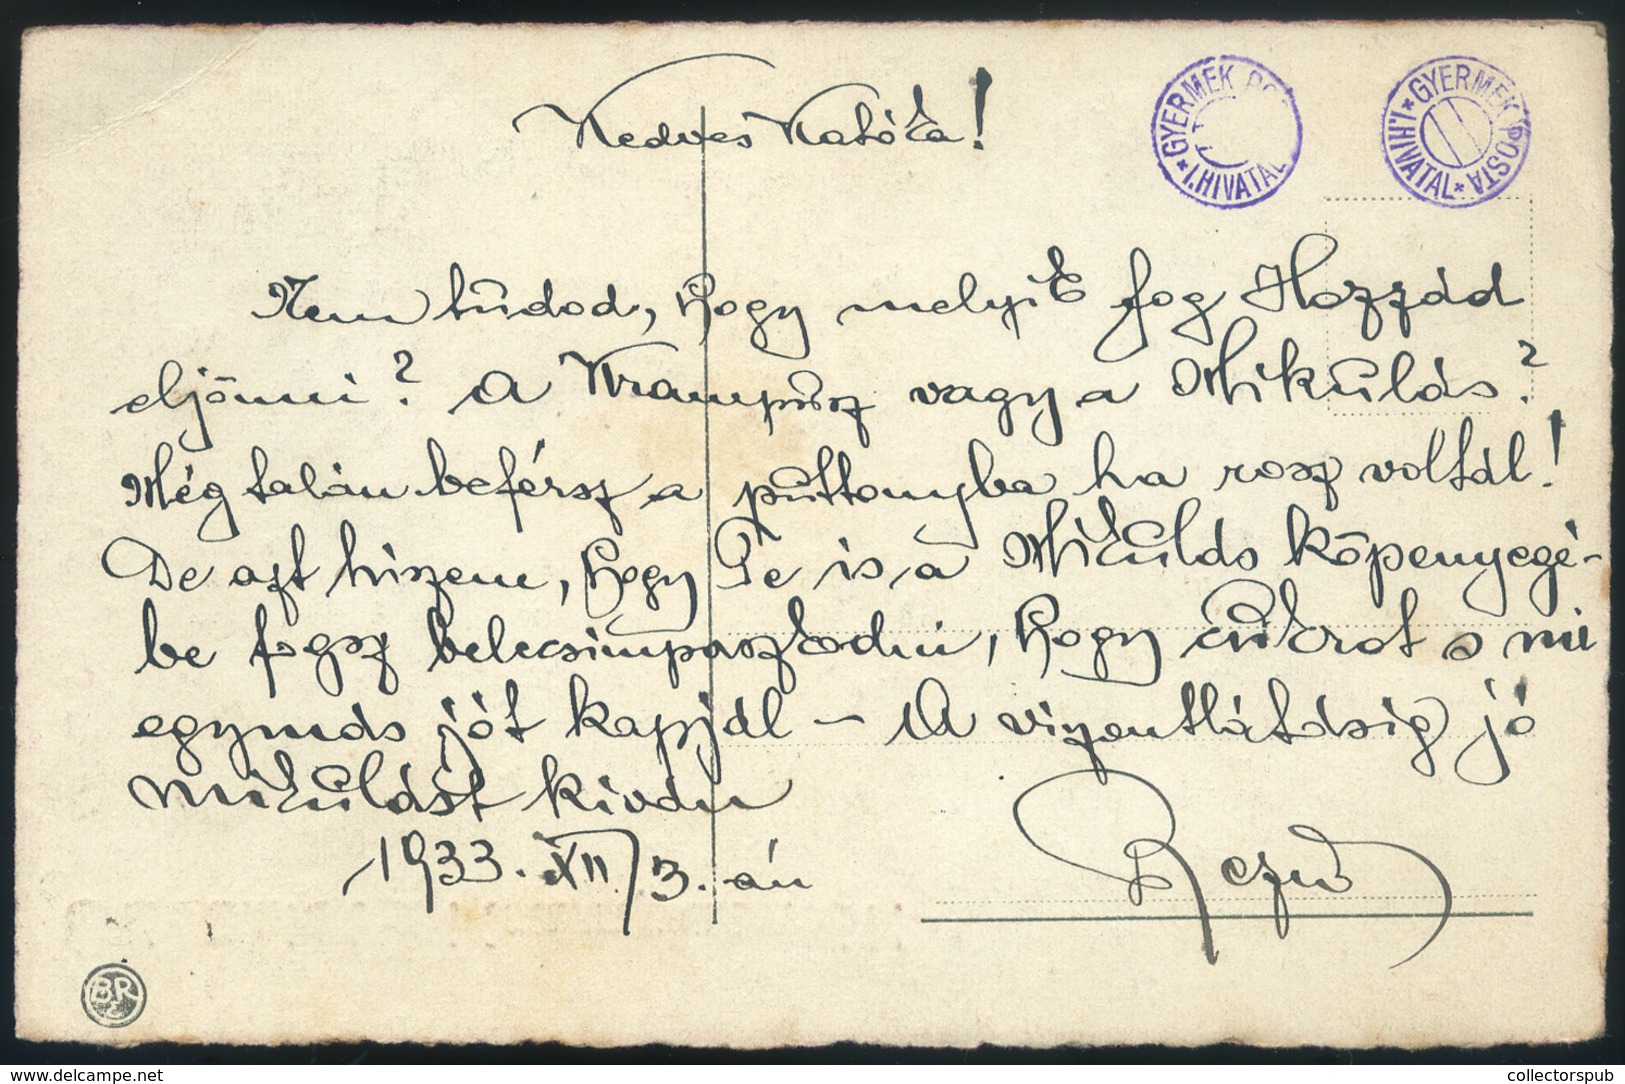 Kedves Katóka!
GYERMEK PO
* I. HIVATAL
* GYERMEK POSTA * I. HIVATAL
Nem tudod, hogy melyik fog Hozzád
eljönni? A Krampusz vagy a Mikulás?
Még talán beférsz a puttonyba ha rosz voltál!
De azt hiszem, hogy Te is a Mikulás köpenyegé-
be fogsz belecsimpaszkodni, hogy cukrot s mi
egymás jót kapjál – A viszentlátásig jó
mikulást kiván
1933. XII/3.-án
Rezső
BR
www.delcampe.net
collectorspub